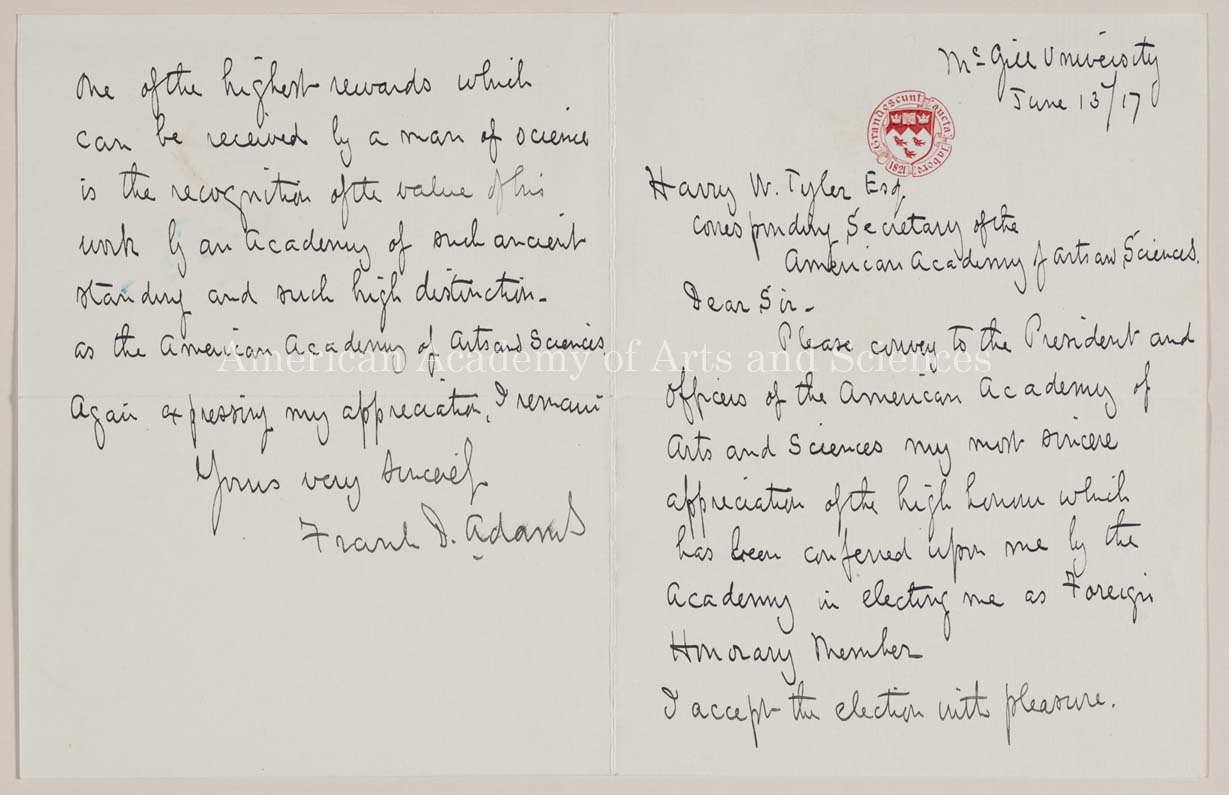 McGill University
June 13/17
Grandescunt aucta labore
1821
Harry W. Tyler Esq.
Corresponding Secretary of the
American Academy of Arts and Sciences.
Dear Sir -
Please convey to the President and
officers of the American Academy of
Arts and Sciences my most sincere
appreciation of the high honour which
has been conferred upon me by the
Academy in electing me as Foreign
Honorary Member
I accept the election with pleasure.
One of the highest rewards which
can be received by a man of science
is the recognition of the value of his
work by an Academy of such ancient
standing and such high distinction -
as the American Academy of Arts and Sciences
Again expressing my appreciation, I remain
Yours very sincerely
Frank D. Adams
American Academy of Arts and Sciences